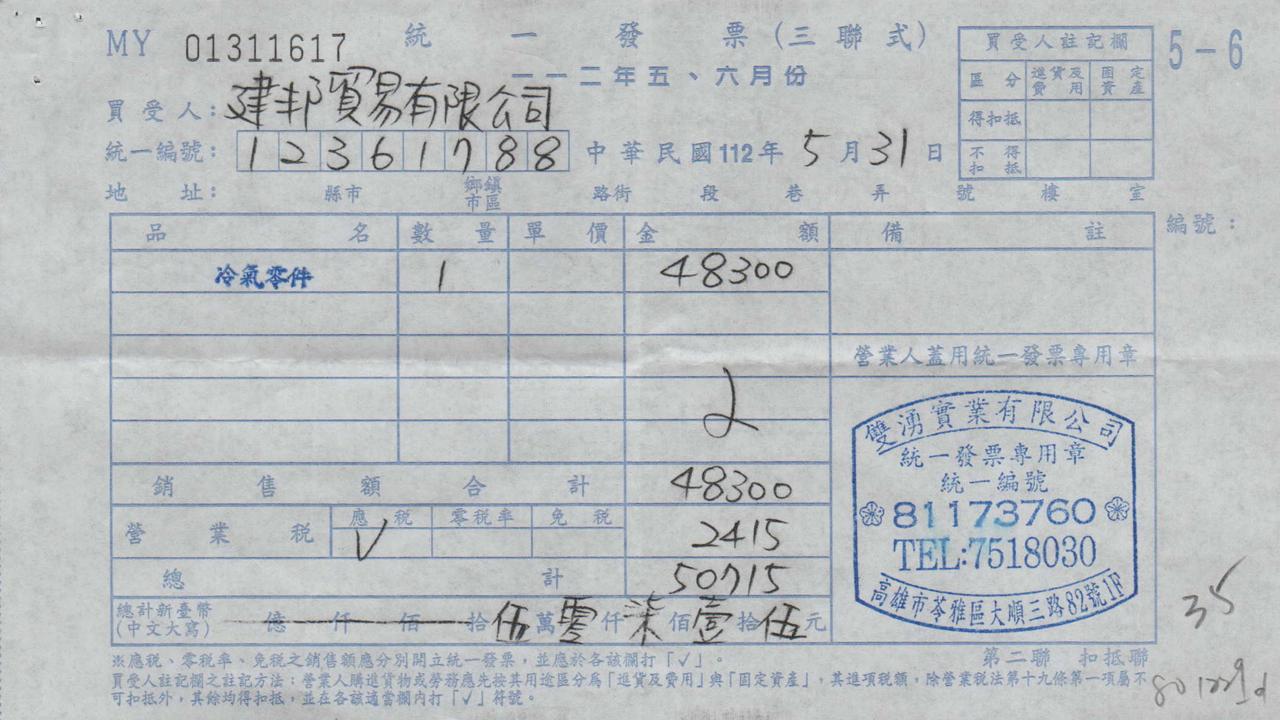 MY 01311617 統一發票(三聯式)
一一二年五、六月份
5-6
買受人註記欄
區分 進貨及費用 固定資產
得扣抵
不得扣抵
買受人:建邦貿易有限公司
統一編號:12361788 中華民國112年5月31日
地址: 縣市 鄉鎮市區 路街 段 巷 弄 號 樓 室
編號:
品名 數量 單價 金額 備註
冷氣零件 1 48300
營業人蓋用統一發票專用章
銷售額合計 48300
營業稅 應稅 V 零稅率 免稅 2415
總計 50715
總計新臺幣(中文大寫) 億仟佰拾伍萬零仟柒佰壹拾伍元
雙湧實業有限公司
統一發票專用章
統一編號
81173760
TEL:7518030
高雄市苓雅區大順三路82號1F
35
第二聯 扣抵聯
※應稅、零稅率、免稅之銷售額應分別開立統一發票,並應於各該欄打「✓」。
買受人註記欄之註記方法:營業人購進貨物或勞務應先按其用途區分為「進貨及費用」與「固定資產」,其進項稅額,除營業稅法第十九條第一項屬不
可扣抵外,其餘均得扣抵,並在各該適當欄內打「✓」符號。